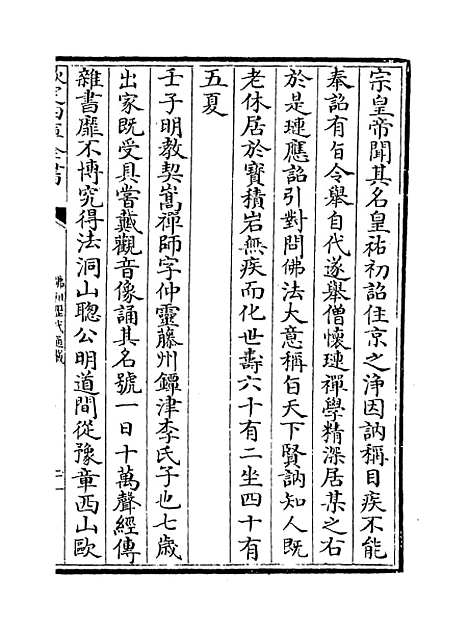 宗皇帝聞其名皇祐初詔住京之淨因訥稱目疾不能
奉詔有旨令舉自代遂舉僧懷璉禪學精深居某之右
於是璉應詔引對問佛法大意稱旨天下賢訥知人既
老休居於寶積岩無疾而化世壽六十有二坐四十有
五夏
壬子明教契嵩禪師字仲靈藤州鐔津李氏子也七歲
出家既受具嘗戴觀音像誦其名號一日十萬聲經傳
雜書靡不博究得法洞山聰公明道間從豫章西山歐
欽定四庫全書
佛祖歷代通載